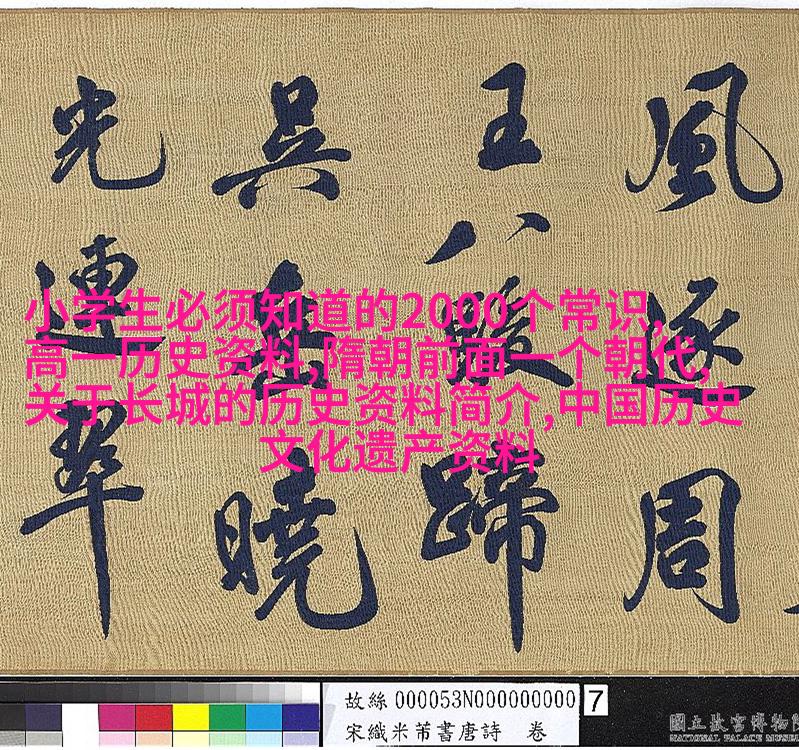 風逐周
王八駿蹄
吳岳曉
光連翠
小学生必须知道的2000个常识,
高一历史资料,隋朝前面一个朝代,
关于长城的历史资料简介,中国历史
文化遗产资料
故絲000053N000000000 7
宋織米芾書唐詩 卷
國立故宮博物院
NATIONAL PALACE MUSEUM